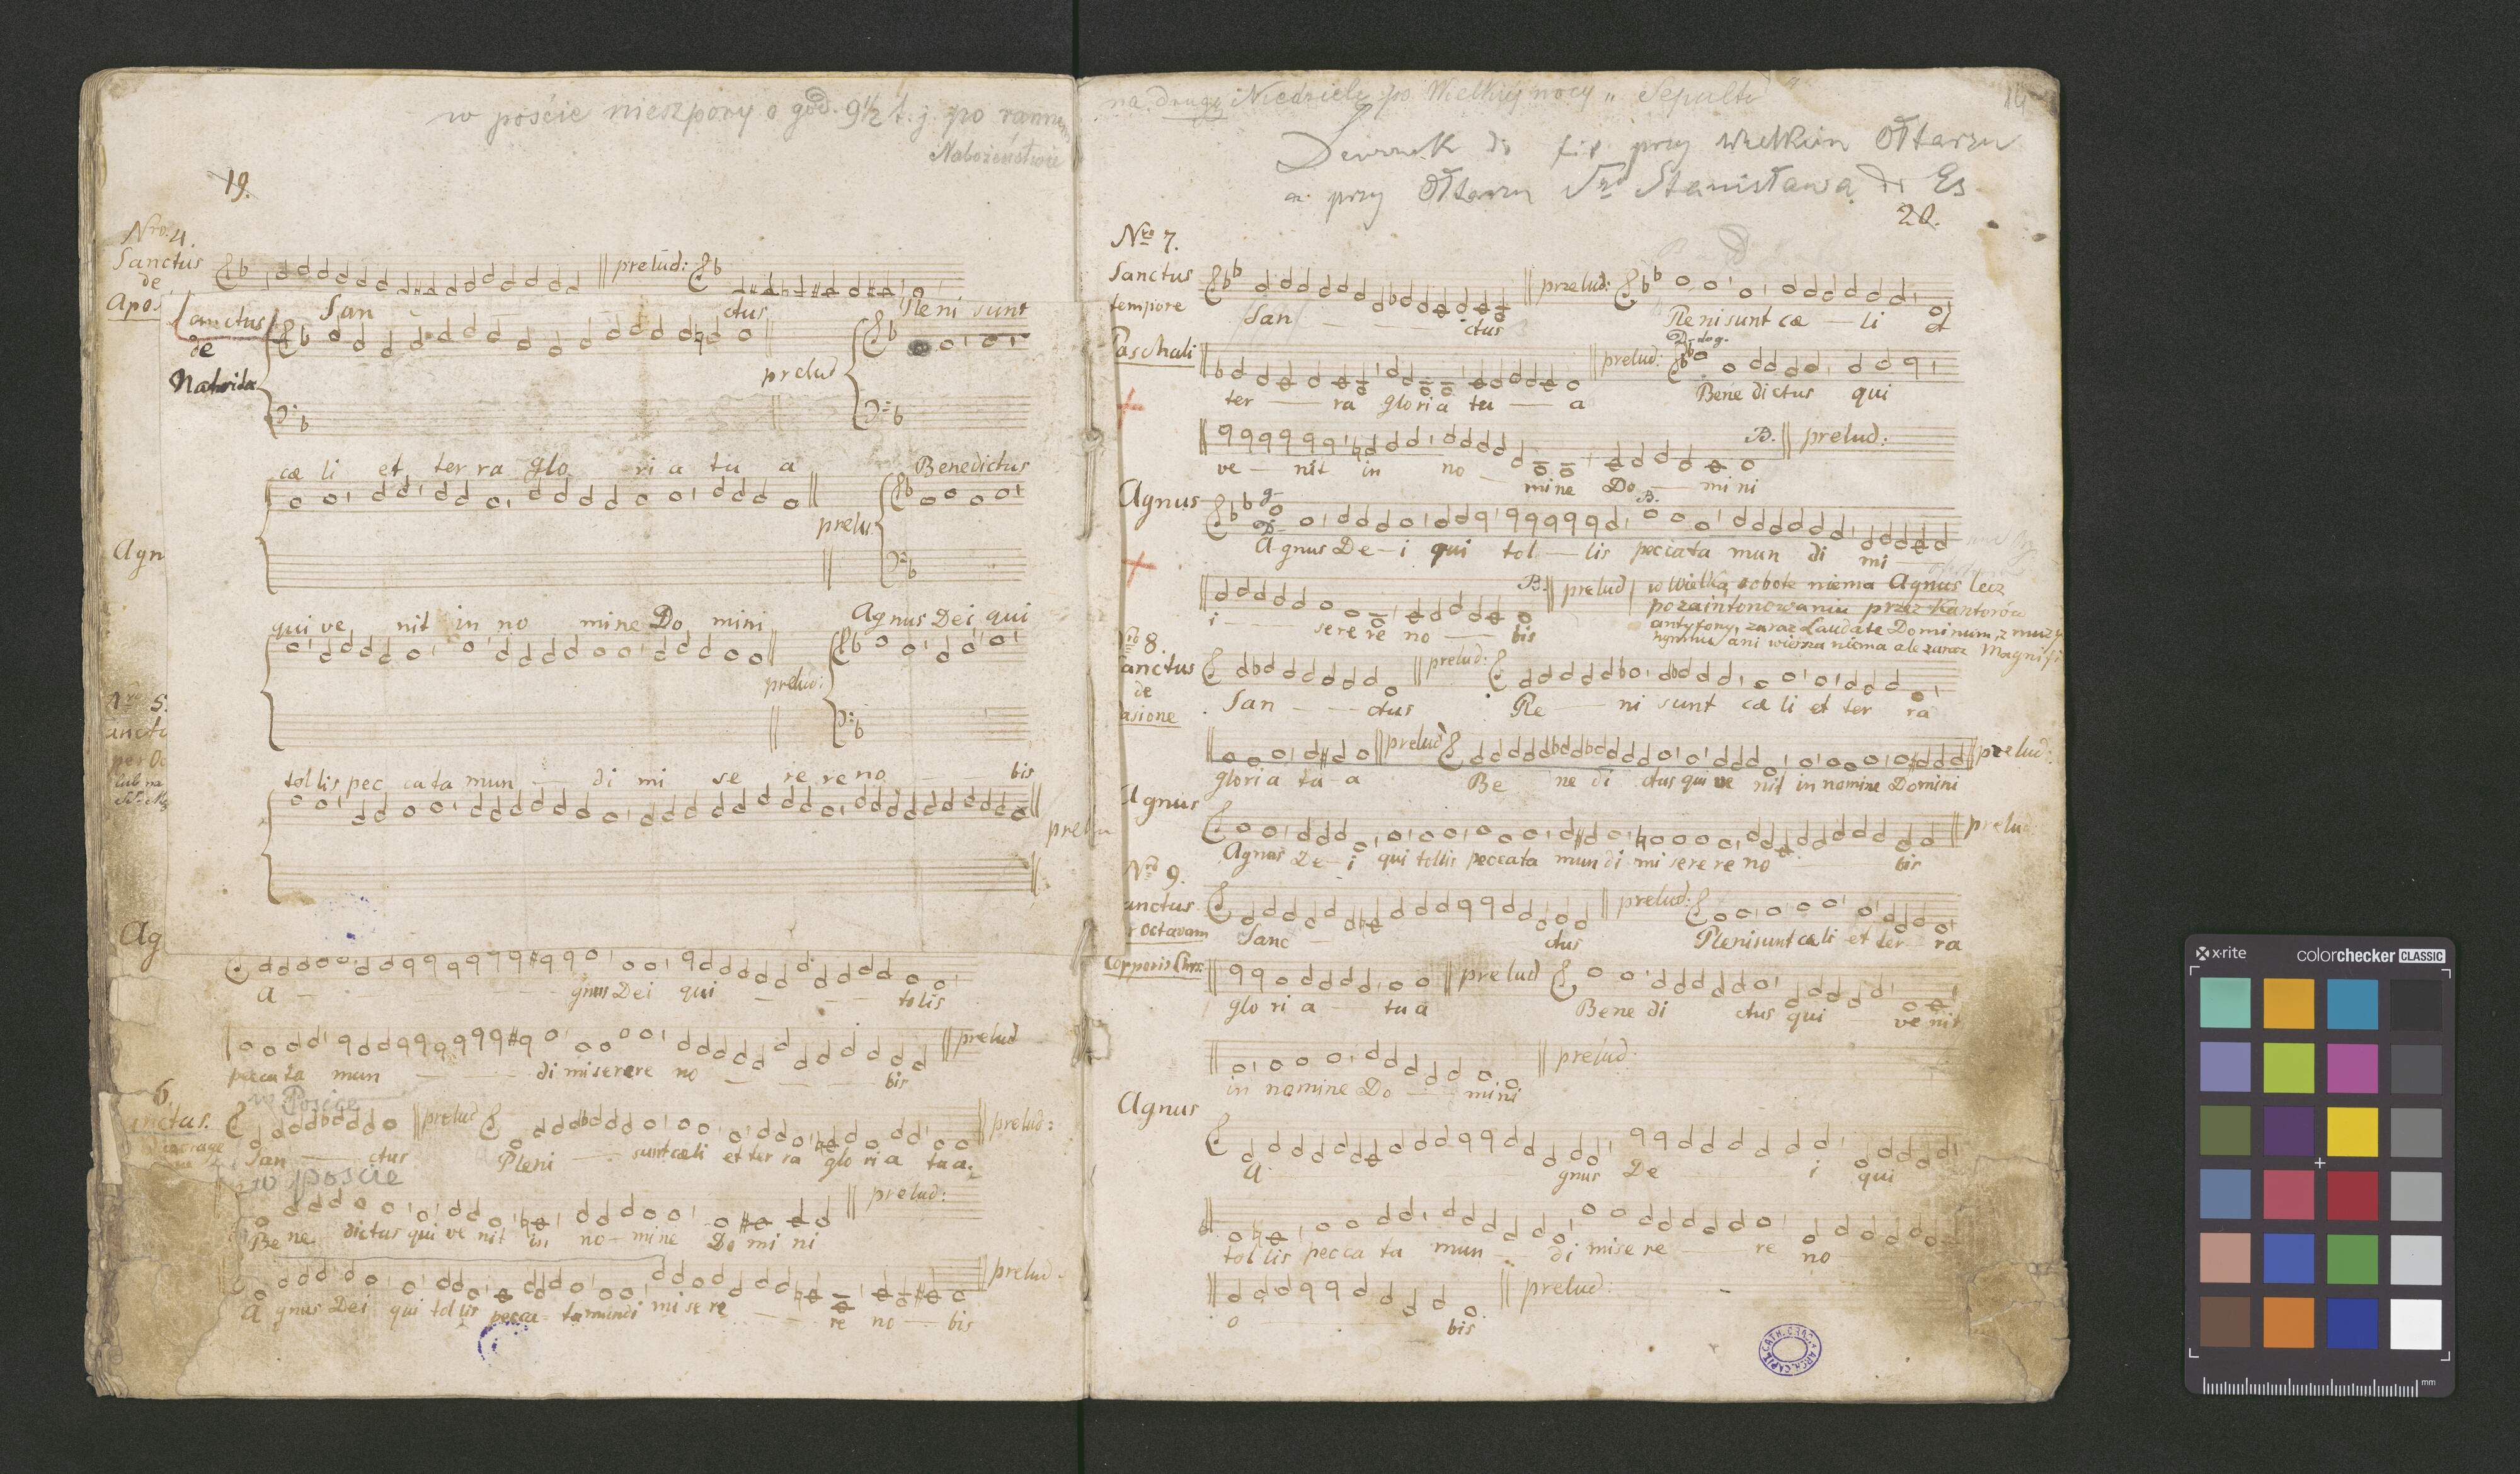 w poście nieszpory o god. 9 1/2 t. j. po rannem
Nabożeństwie
19.
Nro. 4.
Sanctus
de
Apos
prelud:
San ctus Pleni sunt
Sanctus
de
Nativita
prelud
cæ li et ter ra glo ri a tu a Benedictus
prelu
Agn
qui ve nit in no mine Do mini Agnus Dei qui
prelud:
Nro 5.
anctu
per Oc
lub na
tollis pec cata mun — di mi se re re no — bis
prelu
Ag
A — gnus Dei qui — tolis
prelud
peccata mun — di miserere no — bis
6.
w Poscie
anctus.
prelud prelud:
San — ctus Pleni — sunt cæli et ter ra glo ri a tua.
w poscie
prelud:
Be ne dictus qui ve nit in no — mine Do mi ni
prelud.
A gnus Dei qui tol lis pecca — ta mundi mi se re — re no — bis
na drugą Niedzielę po Wielkiej nocy „Sepulto"
14
przy wielkim Ołtarzu
a przy Ołtarzu Sgo Stanisława Es
20.
Nro 7.
Sanctus
tempore
Paschali
przelud:
San — ctus Pleni sunt cæ — li et
prelud:
ter — ra gloria tu — a Bene dictus qui
B. prelud:
ve — nit in no — mine Do — mini
Agnus
B.
Agnus De — i qui tol — lis peccata mun di mi
B. prelud w Wielką sobotę niema Agnus lecz
po zaintonowaniu przez Kantorów
antyfony, zaraz Laudate Dominum, z muzy
hymnu ani wiersza niema ale zaraz Magnifi
i — serere no — bis
Nro 8.
Sanctus
de
asione
prelud:
San — ctus Ple — ni sunt cæ li et ter ra
prelud prelud:
gloria tu — a Be ne di ctus qui ve nit in nomine Domini
Agnus
prelud
Agnus De — i qui tollis peccata mundi miserere no — bis
Nro 9.
anctus
r octavam
Corporis Chrs:
prelud:
Sanc — ctus Pleni sunt cæli et ter — ra
prelud
glo ri a — tua Bene di ctus qui — ve nit
prelud:
in nomine Do — mini
Agnus
A — gnus De — i qui
tol lis pecca ta mun — di mise re — re no
prelud:
o — bis
ARCH. CAPIT. CATH. CRAC.
x-rite colorchecker CLASSIC
mm